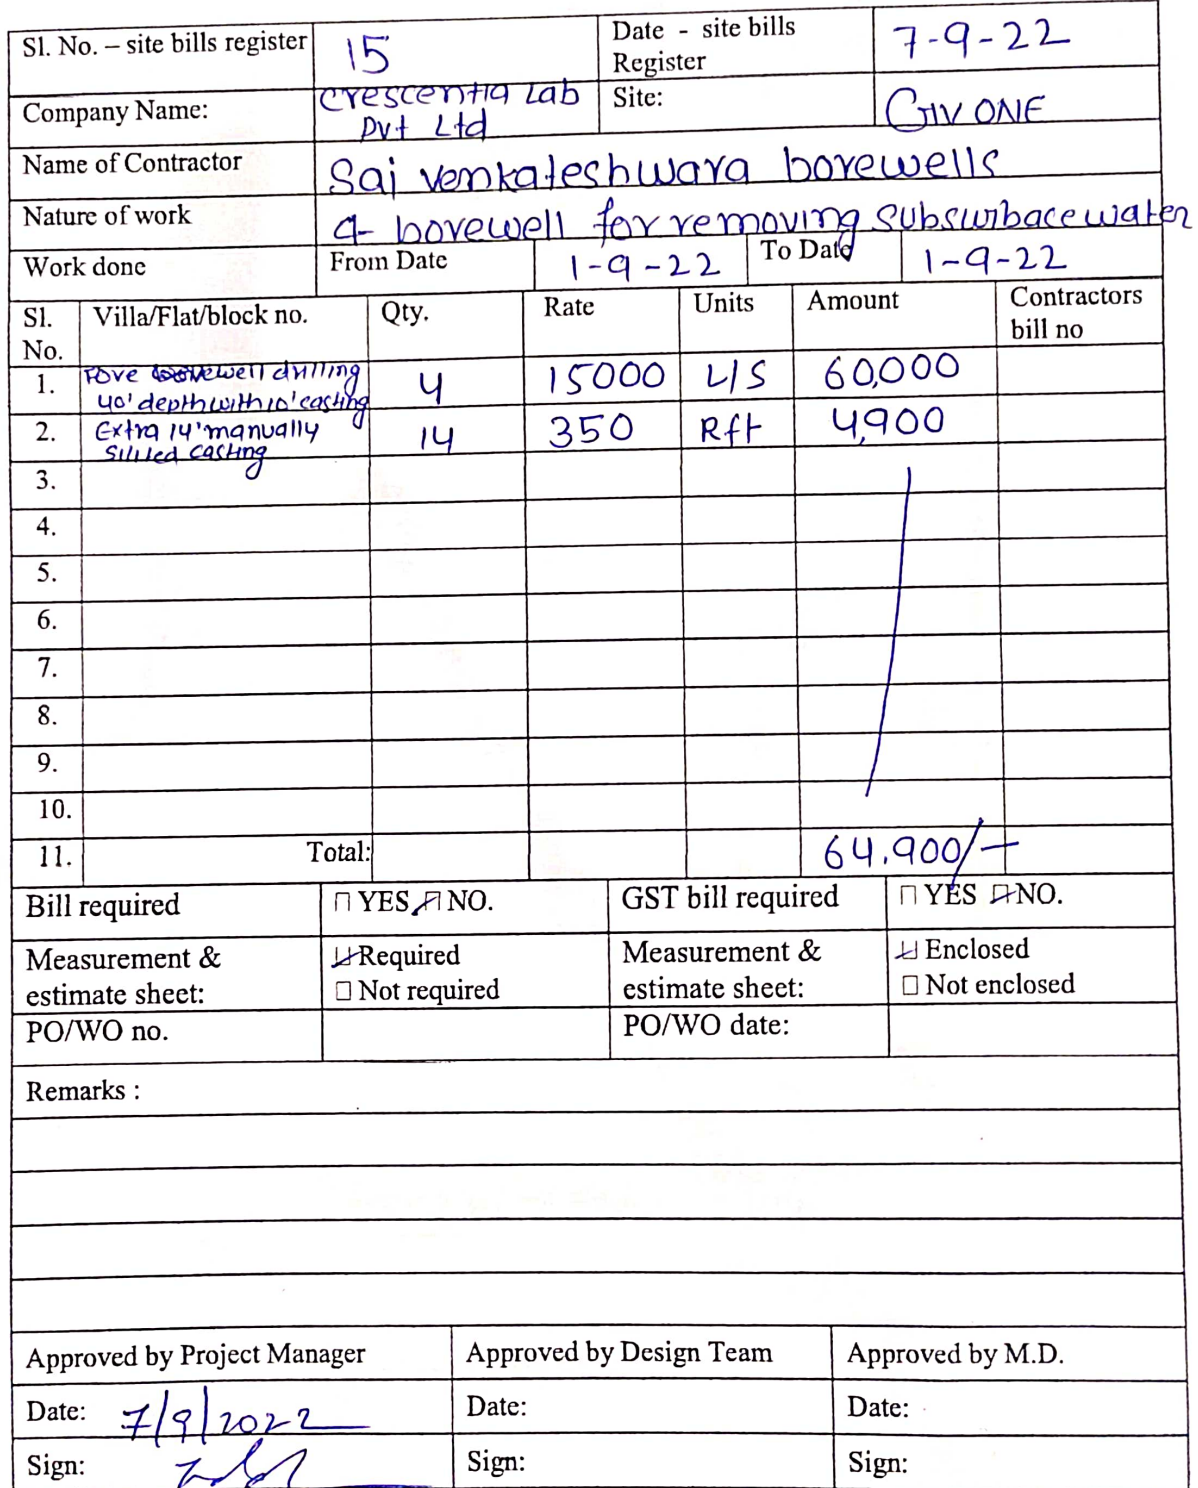 Sl. No. – site bills register 15 Date - site bills Register 7-9-22
Company Name: Crescentia Lab Pvt Ltd Site: GIV ONE
Name of Contractor Sai venkateshwara borewells
Nature of work 4- borewell for removing subsurbace water
Work done From Date 1-9-22 To Date 1-9-22
Sl. No. Villa/Flat/block no. Qty. Rate Units Amount Contractors bill no
1. borewell drilling 40' depth with 10' casting 4 15000 L/S 60,000
2. Extra 14' manually casting 14 350 Rft 4,900
3.
4.
5.
6.
7.
8.
9.
10.
11. Total: 64,900/-
Bill required YES NO. GST bill required YES NO.
Measurement & estimate sheet: Required Measurement & estimate sheet: Enclosed
Not required Not enclosed
PO/WO no. PO/WO date:
Remarks :
Approved by Project Manager Approved by Design Team Approved by M.D.
Date: 7/9/2022 Date: Date:
Sign: Sign: Sign: